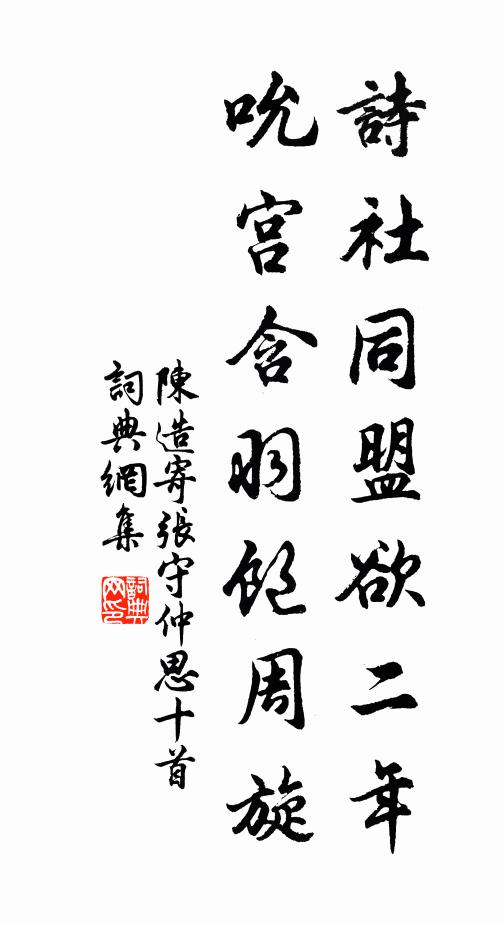 詩社同盟欲二年
吮宮含羽飽周旋
陳造寄張守仲思十首
詞典網集
詞典
网印